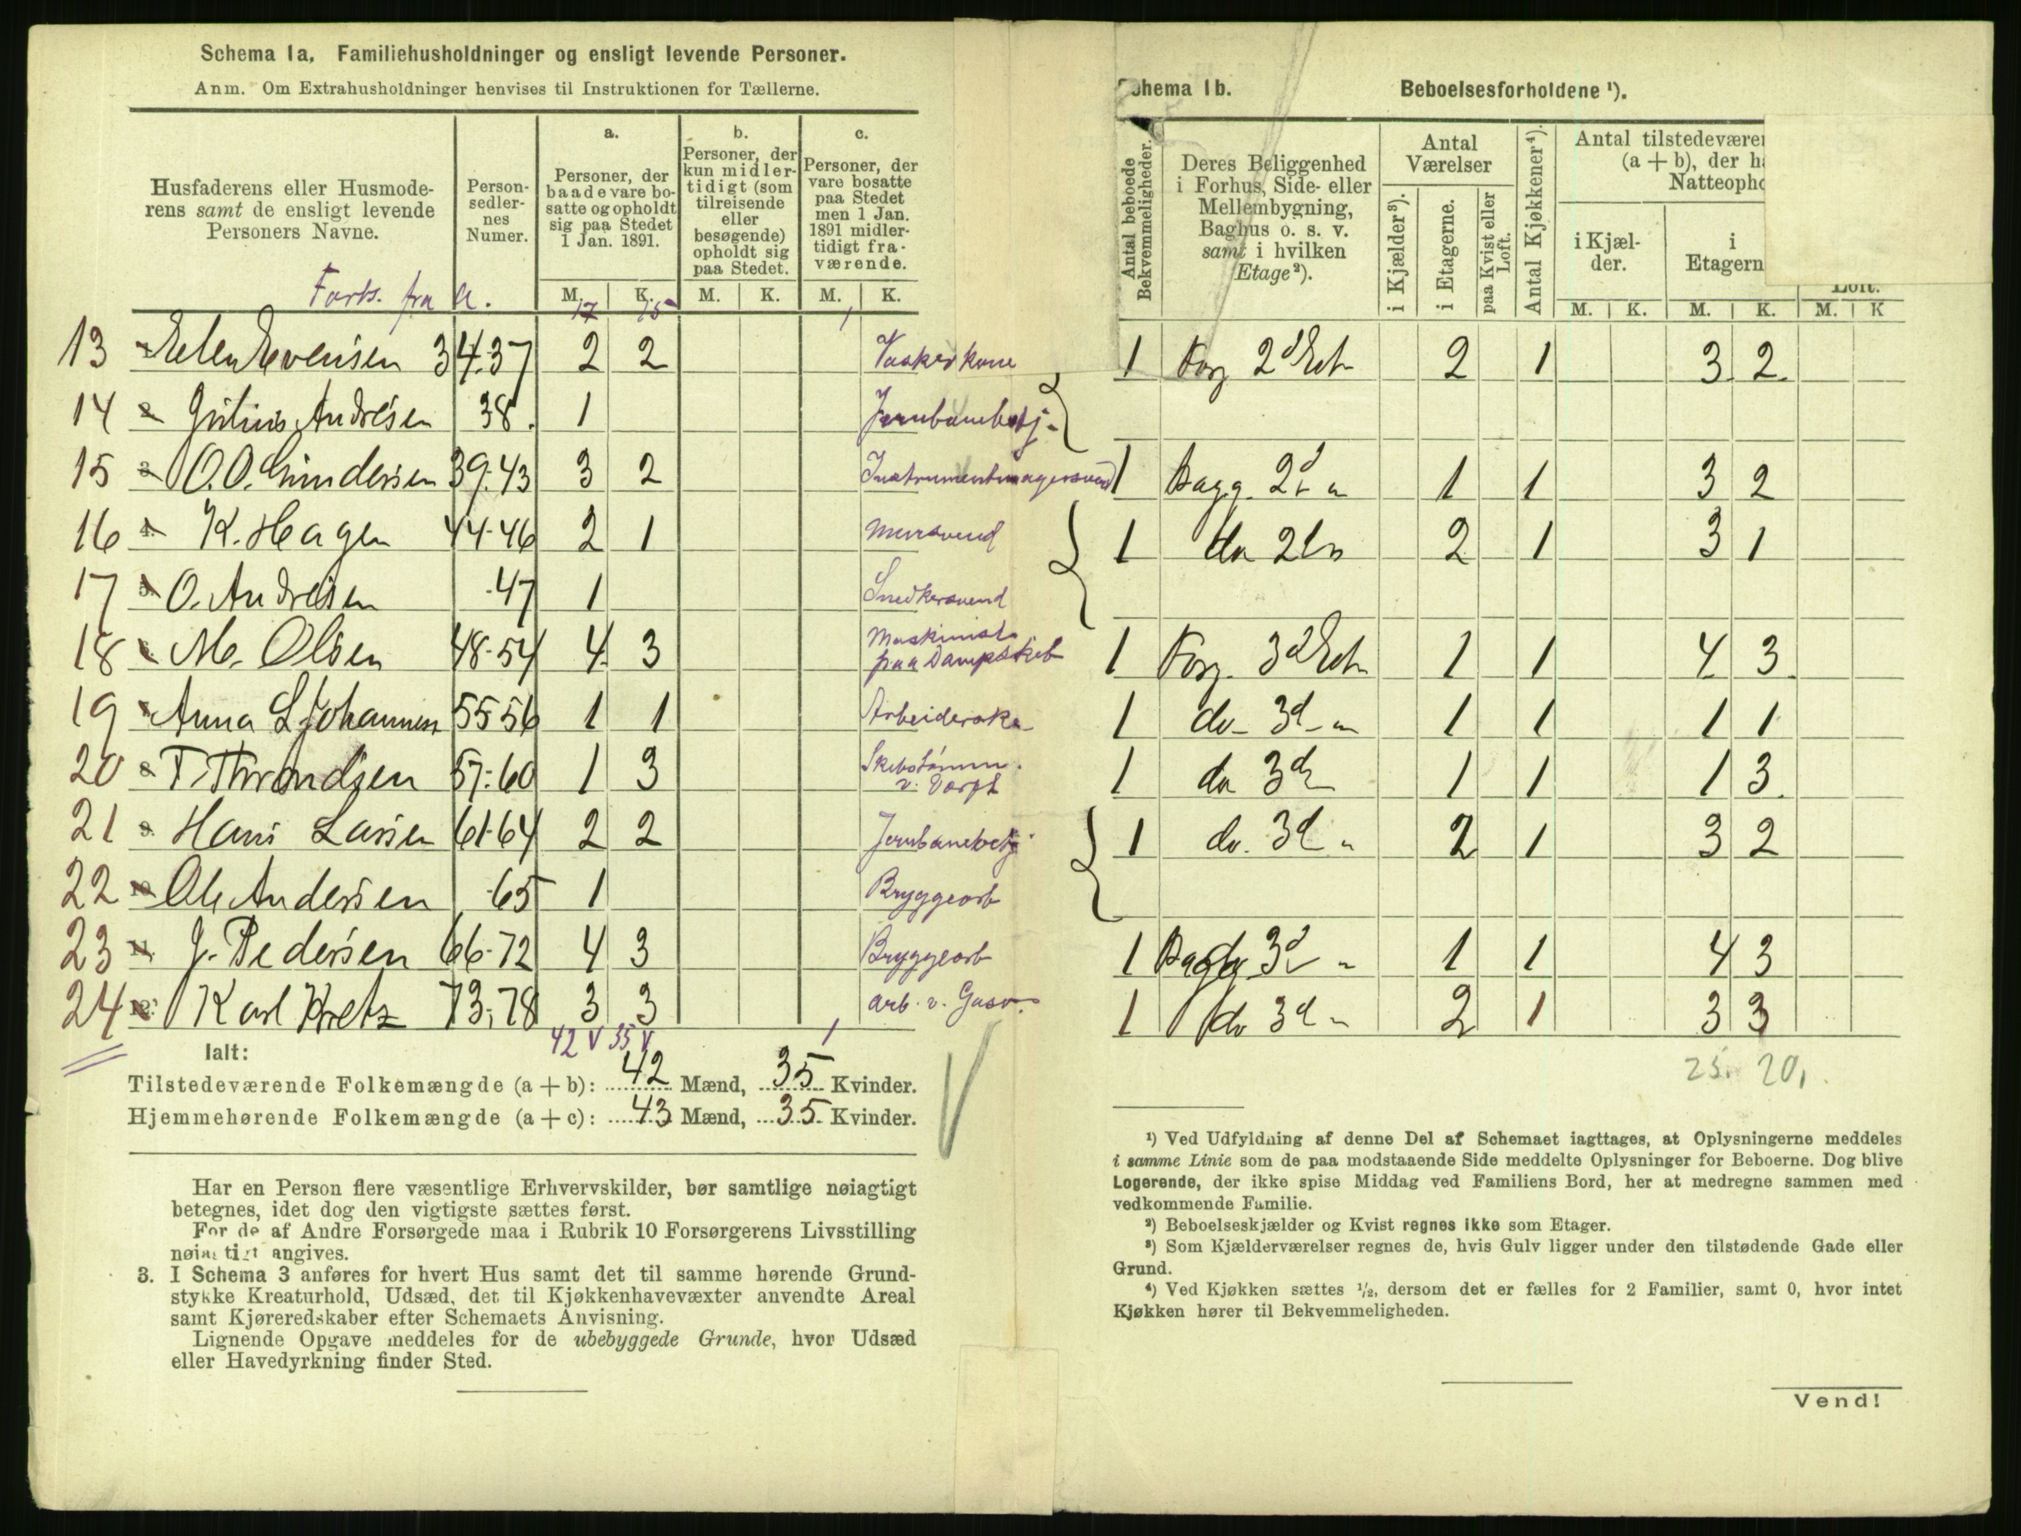 Schema 1a. Familiehusholdninger og ensligt levende Personer.
Anm. Om Extrahusholdninger henvises til Instruktionen for Tællerne.
Husfaderens eller Husmode-
rens samt de ensligt levende
Personers Navne.
Person-
sedler-
nes
Numer.
a.
Personer, der
baade vare bo-
satte og opholdt
sig paa Stedet
1 Jan. 1891.
b.
Personer, der
kun midler-
tidigt (som
tilreisende
eller
besøgende)
opholdt sig
paa Stedet.
c.
Personer, der
vare bosatte
paa Stedet
men 1 Jan.
1891 midler-
tidigt fra-
værende.
Forts. fra a.
M. K. M. K. M. K.
17 15 1
13 Elen Evensen 34-37 2 2 Vaskerkone
14 Julius Andresen 38. 1 Jernbanebetj.
15 O. O. Gundersen 39-43 3 2 Instrumentmagersvend
16 K. Hagen 44-46 2 1 Mursvend
17 O. Andresen 47 1 Snedkersvend
18 M. Olsen 48-54 4 3 Maskinist paa Dampskib
19 Anna L Johannesen 55 56 1 1 Arbeiderske
20 T. Throndsen 57-60 1 3 Skibstømm. v. Værft
21 Hans Larsen 61-64 2 2 Jernbanebetj
22 Ole Andersen 65 1 Bryggearb
23 J. Pedersen 66-72 4 3 Bryggearb
24 Karl Kretz 73-78 3 3 Arb. v. Gasv.
42 V 35 V 1
Ialt:
Tilstedeværende Folkemængde (a + b): 42 Mænd, 35 Kvinder.
Hjemmehørende Folkemængde (a + c): 43 Mænd, 35 Kvinder.
Har en Person flere væsentlige Erhvervskilder, bør samtlige nøiagtigt
betegnes, idet dog den vigtigste sættes først.
For de af Andre Forsørgede maa i Rubrik 10 Forsørgerens Livsstilling
nøiagtigt angives.
3. I Schema 3 anføres for hvert Hus samt det til samme hørende Grund-
stykke Kreaturhold, Udsæd, det til Kjøkkenhavevæxter anvendte Areal
samt Kjøreredskaber efter Schemaets Anvisning.
Lignende Opgave meddeles for de ubebyggede Grunde, hvor Udsæd
eller Havedyrkning finder Sted.
Schema 1b. Beboelsesforholdene ¹).
Antal beboede
Bekvemmeligheder.
Deres Beliggenhed
i Forhus, Side- eller
Mellembygning,
Baghus o. s. v.
samt i hvilken
Etage ²).
Antal
Værelser
i Kjælder ³).
i Etagerne.
paa Kvist eller
Loft.
Antal Kjøkkener ⁴).
Antal tilstedevære
(a + b), der h
Natteoph
i Kjæl-
der.
i
Etagern
Loft.
M. K. M. K. M. K
1 Forg 2d Et 2 1 3 2
1 Bagg. 2d " 1 1 3 2
1 do 2d " 2 1 3 1
1 Forg. 3d Et 1 1 4 3
1 do 3d " 1 1 1 1
1 do 3d 1 1 1 3
1 do. 3d " 2 1 3 2
1 Bagg 3d " 1 1 4 3
1 do 3d " 2 1 3 3
25. 20.
¹) Ved Udfyldning af denne Del af Schemaet iagttages, at Oplysningerne meddeles
i samme Linie som de paa modstaaende Side meddelte Oplysninger for Beboerne. Dog blive
Logerende, der ikke spise Middag ved Familiens Bord, her at medregne sammen med
vedkommende Familie.
²) Beboelseskjælder og Kvist regnes ikke som Etager.
³) Som Kjælderværelser regnes de, hvis Gulv ligger under den tilstødende Gade eller
Grund.
⁴) Ved Kjøkken sættes ½, dersom det er fælles for 2 Familier, samt 0, hvor intet
Kjøkken hører til Bekvemmeligheden.
Vend!